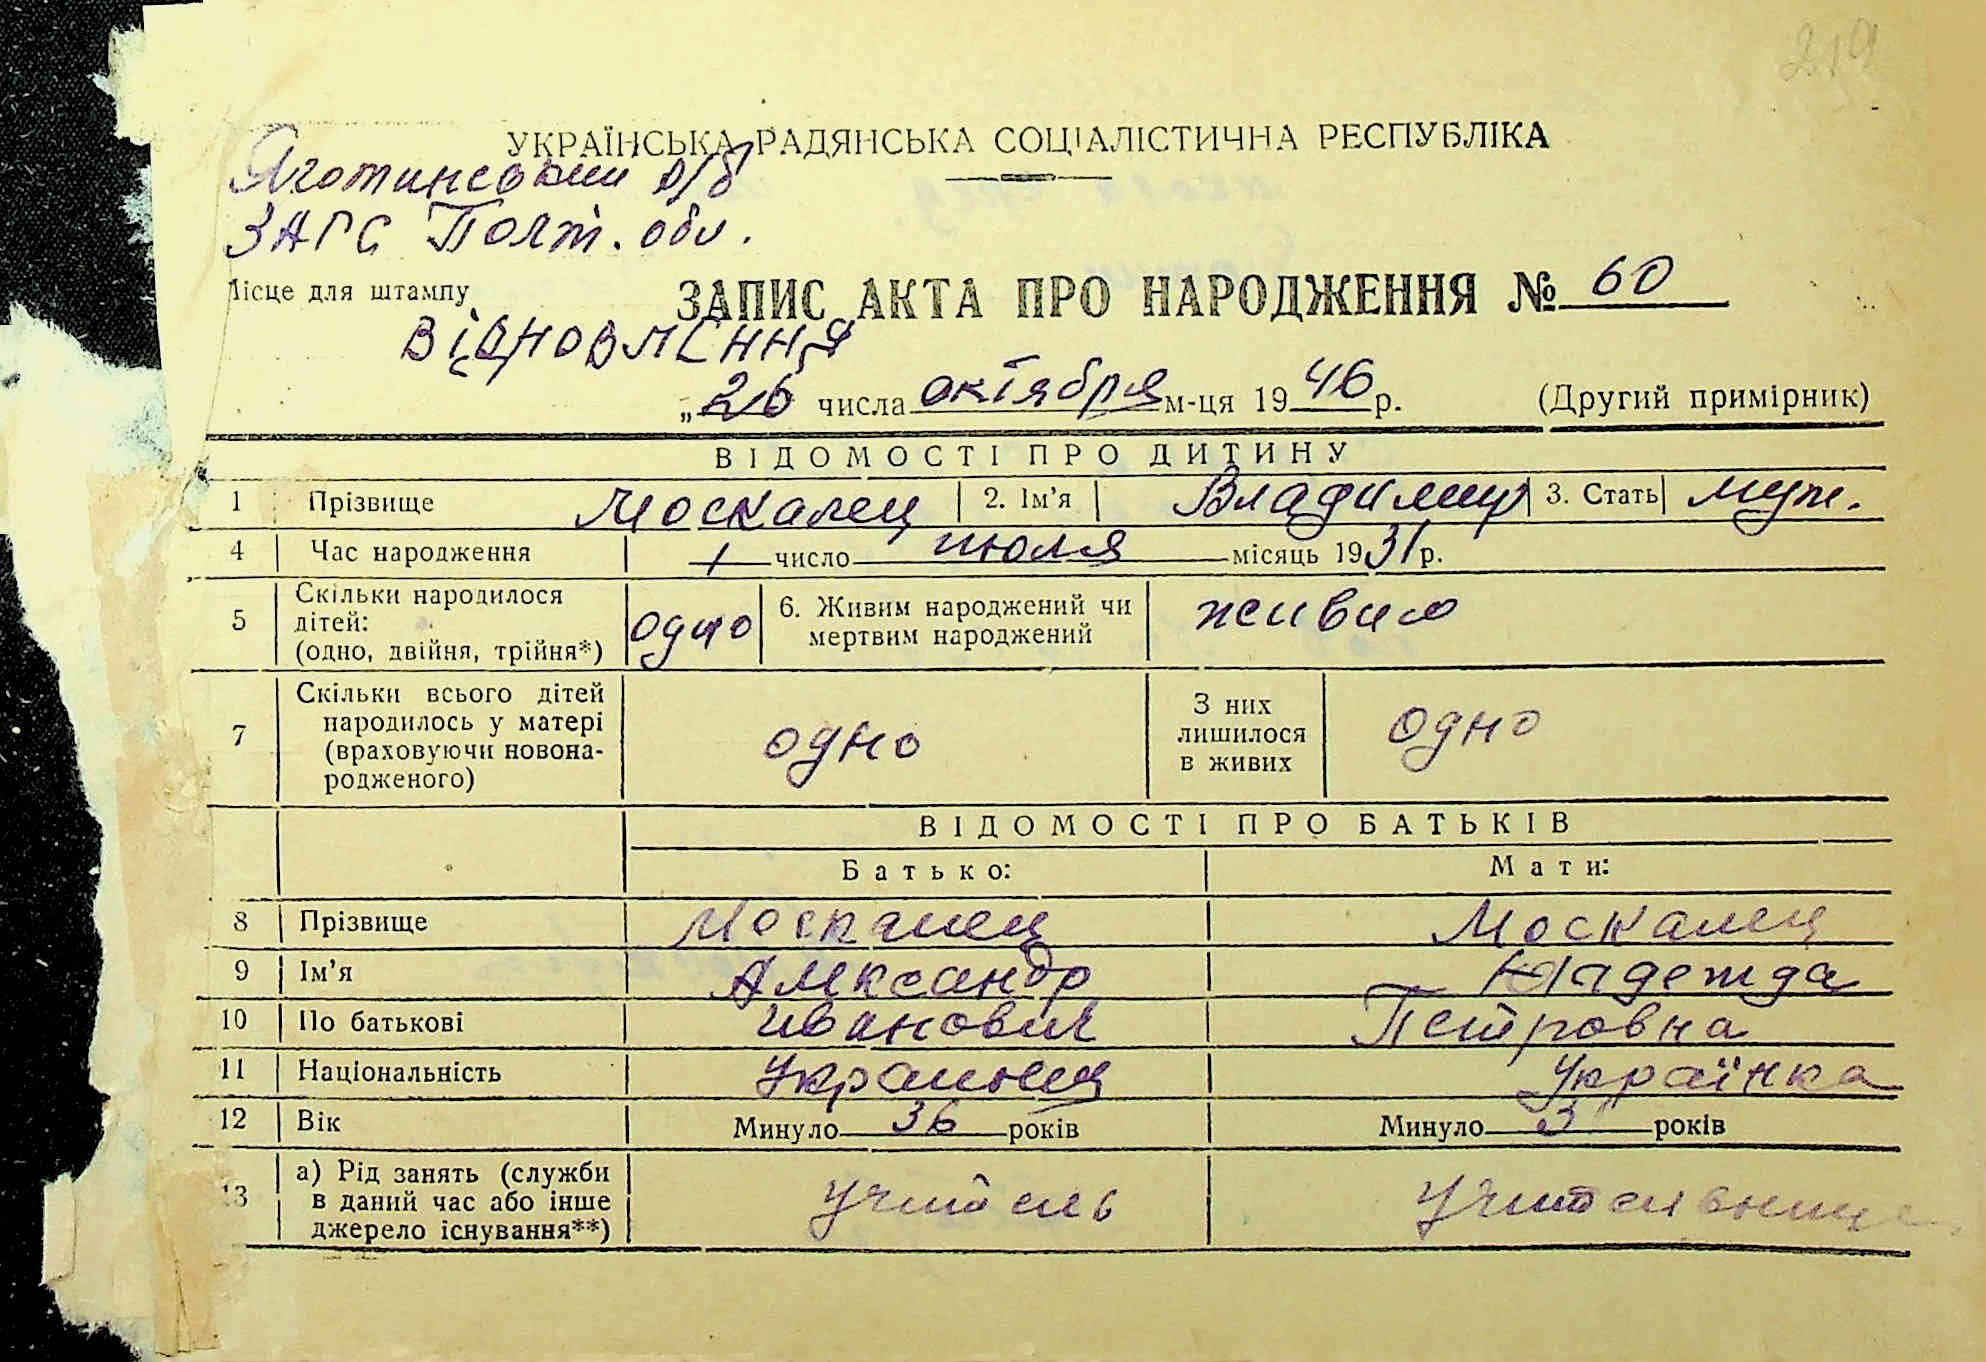 219
УКРАЇНСЬКА РАДЯНСЬКА СОЦІАЛІСТИЧНА РЕСПУБЛІКА
Яготинський р/б
ЗАГС Полт. обл.
Місце для штампу
ЗАПИС АКТА ПРО НАРОДЖЕННЯ № 60
Відновлення
„26 числа октября м-ця 1946 р. (Другий примірник)
ВІДОМОСТІ ПРО ДИТИНУ
1 Прізвище Москалец 2. Ім'я Владимир 3. Стать муж.
4 Час народження 1 число июля місяць 1931 р.
5 Скільки народилося дітей: (одно, двійня, трійня*) одно 6. Живим народжений чи мертвим народжений живим
7 Скільки всього дітей народилось у матері (враховуючи новонародженого) одно З них лишилося в живих одно
ВІДОМОСТІ ПРО БАТЬКІВ
Батько: Мати:
8 Прізвище Москалец Москалец
9 Ім'я Александр Надежда
10 По батькові Иванович Петровна
11 Національність Украинец Українка
12 Вік Минуло 36 років Минуло років
13 а) Рід занять (служби в даний час або інше джерело існування**) учитель учительница